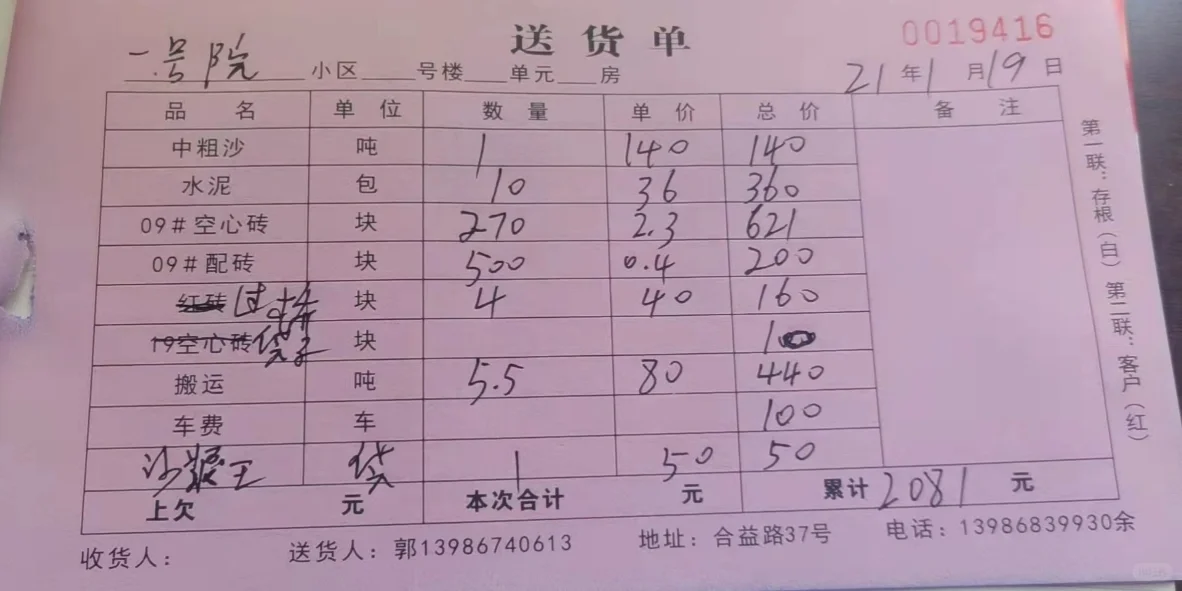 送货单
0019416
一号院 小区 号楼 单元 房
21年1月19日
品名 单位 数量 单价 总价 备注
中粗沙 吨 1 140 140
水泥 包 10 36 360
09#空心砖 块 270 2.3 621
09#配砖 块 500 0.4 200
红砖 过 块 4 40 160
19空心砖 袋子 块 10
搬运 吨 5.5 80 440
车费 车 100
沙 王 袋 1 50 50
上欠 元 本次合计 元 累计2081元
收货人: 送货人:郭13986740613 地址:合益路37号 电话:13986839930余
第一联:存根(白) 第二联:客户(红)